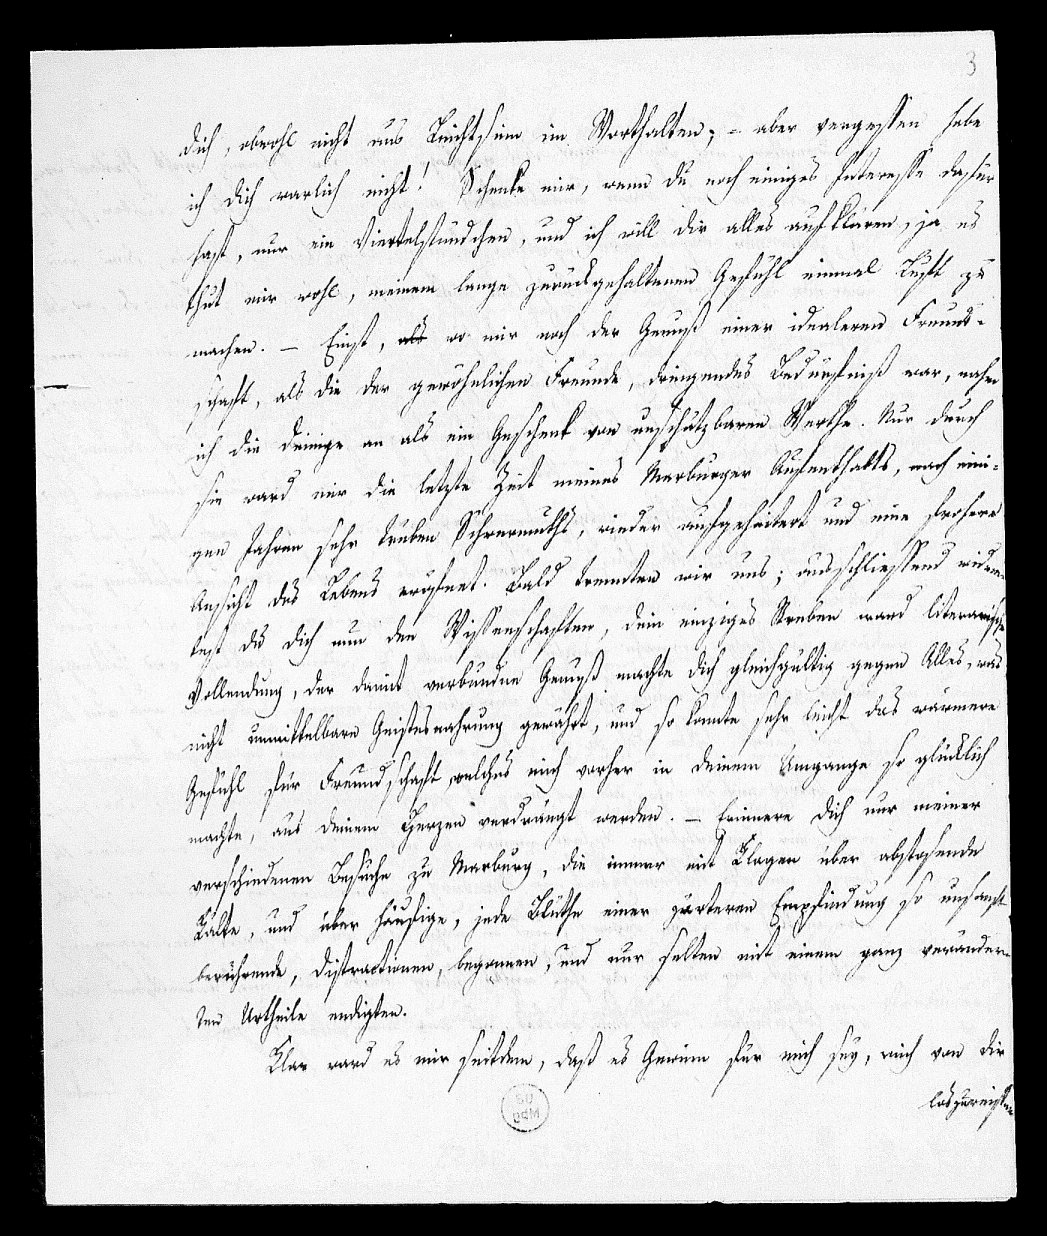 3
dich, obwohl nicht aus Leichtsinn im Worthalten; – aber vergessen habe
ich dich warlich nicht! Schenke mir, wenn du noch einiges Interesse dafür
hast, nur ein Viertelstündchen, und ich will dir alles aufklären, ja es
thut mir wohl, meinem lange zurückgehaltenen Gefühl einmal Luft zu
machen. – Einst, als wo mir noch der Genuß einer idealeren Freund-
schaft, als die der gewöhnlichen Freunde, dringendes Bedürfniß war, nahm
ich die deinige an als ein Geschenk von unschätzbarem Werthe. Nur durch
sie ward mir die letzte Zeit meines Marburger Aufenthalts, nach eini-
gen Jahren sehr trüben Schwermuths, wieder aufgeheitert und eine frohere
Ansicht des Lebens eröfnet. Bald trennten wir uns; ausschliessend widme-
test du dich nun den Wissenschaften, dein einziges Streben ward literarische
Vollendung, der damit verbundne Genuß machte dich gleichgültig gegen Alles, was
nicht unmittelbare Geistesnahrung gewährt, und so konnte sehr leicht das wärmere
Gefühl für Freundschaft, welches mich vorher in deinem Umgange so glücklich
machte, aus deinem Herzen verdrängt werden. – Erinnere dich nur meiner
verschiedenen Besuche zu Marburg, die immer mit Klagen über abstosende
Kälte, und über häufige, jede Blüthe einer zärteren Empfindung so unsanft
berührende, Distractionen, begonnen, und nur selten mit einem ganz veränder-
ten Urtheile endigten.
Klar ward es mir seitdem, daß es Gewinn für mich sey, mich von dir
loszureissen